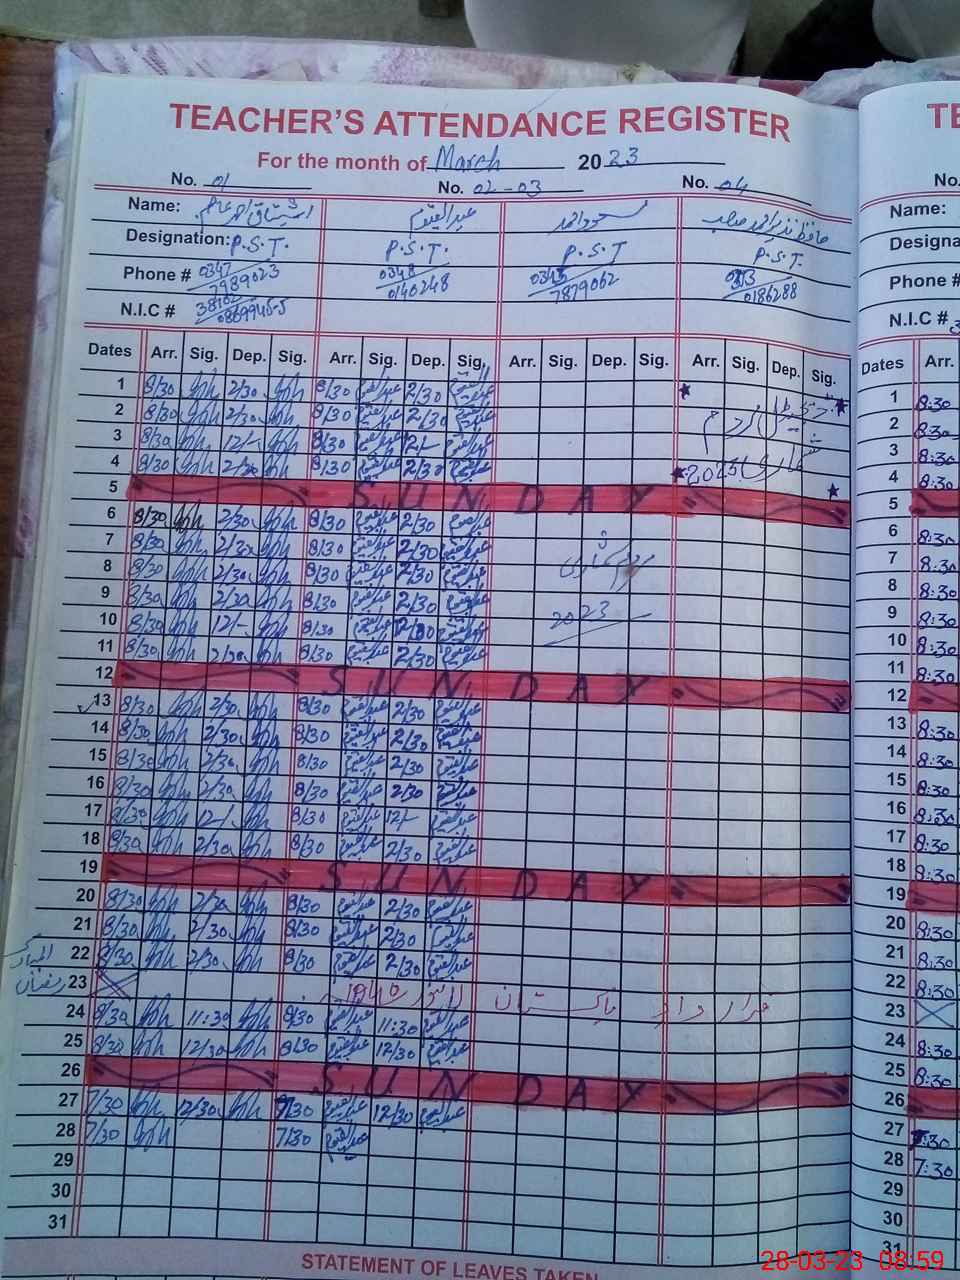 TEACHER'S ATTENDANCE REGISTER TE
For the month of March 2023
No. 01 No. 02-03 No. 04 No.
Name: عبدالقیوم مسعود احمد Name:
Designation: P.S.T. P.S.T. P.S.T P.S.T. Designa
Phone # 0347 0348 0345 Phone #
7989023 0140248 7879062 0186288
N.I.C # N.I.C #
Dates Arr. Sig. Dep. Sig. Arr. Sig. Dep. Sig. Arr. Sig. Dep. Sig. Arr. Sig. Dep. Sig. Dates Arr.
1 8/30 2/30 8/30 عبدالقیوم 2/30 عبدالقیوم 1 8:30
2 8/30 2/30 8/30 عبدالقیوم 2/30 عبدالقیوم 2 8:30
3 8/30 12/- 8/30 عبدالقیوم 12/- عبدالقیوم 3 8:30
4 8/30 2/30 8/30 عبدالقیوم 2/30 عبدالقیوم 2023 4 8:30
5 SUNDAY 5
6 8/30 2/30 8/30 عبدالقیوم 2/30 عبدالقیوم 6 8:30
7 8/30 2/30 8/30 عبدالقیوم 2/30 عبدالقیوم مردم شماری 7 8:30
8 8/30 2/30 8/30 عبدالقیوم 2/30 عبدالقیوم 8 8:30
9 8/30 2/30 8/30 عبدالقیوم 2/30 عبدالقیوم 2023 9 8:30
10 8/30 12/- 8/30 عبدالقیوم عبدالقیوم 10 8:30
11 8/30 2/30 8/30 عبدالقیوم 2/30 عبدالقیوم 11 8:30
12 SUNDAY 12
13 8/30 2/30 8/30 عبدالقیوم 2/30 عبدالقیوم 13 8:30
14 8/30 2/30 8/30 عبدالقیوم 2/30 عبدالقیوم 14 8:30
15 8/30 2/30 8/30 عبدالقیوم 2/30 عبدالقیوم 15 8:30
16 8/30 2/30 8/30 عبدالقیوم 2/30 عبدالقیوم 16 8:30
17 8/30 12/- 8/30 عبدالقیوم 12/- عبدالقیوم 17 8:30
18 8/30 2/30 8/30 عبدالقیوم 2/30 عبدالقیوم 18 8:30
19 SUNDAY 19
20 8/30 2/30 8/30 عبدالقیوم 2/30 عبدالقیوم 20 8:30
21 8/30 2/30 8/30 عبدالقیوم 2/30 عبدالقیوم 21 8:30
المبارک 22 8/30 2/30 8/30 عبدالقیوم 2/30 عبدالقیوم 22 8:30
رمضان 23 قرار داد پاکستان لاہور 1940 23
24 8/30 11:30 8/30 عبدالقیوم 11:30 عبدالقیوم 24 8:30
25 8/30 12/30 8/30 عبدالقیوم 12/30 عبدالقیوم 25 8:30
26 SUNDAY 26
27 7/30 12/30 7/30 عبدالقیوم 12/30 عبدالقیوم 27 7:30
28 7/30 7/30 عبدالقیوم 28 7:30
29 29
30 30
31 31
STATEMENT OF LEAVES TAKEN
28-03-23 08:59